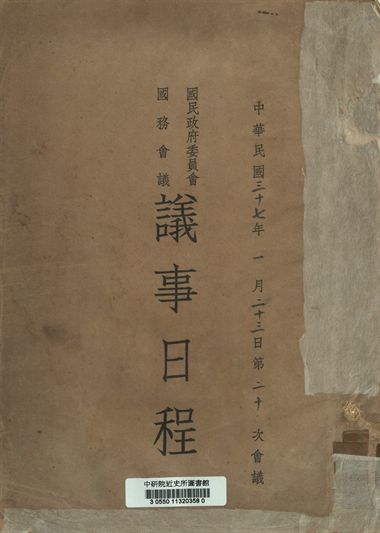 中華民國三十七年一月二十三日第二十次會議
國民政府委員會
國務會議
議事日程
中研院近史所圖書館
3 0550 11320358 0